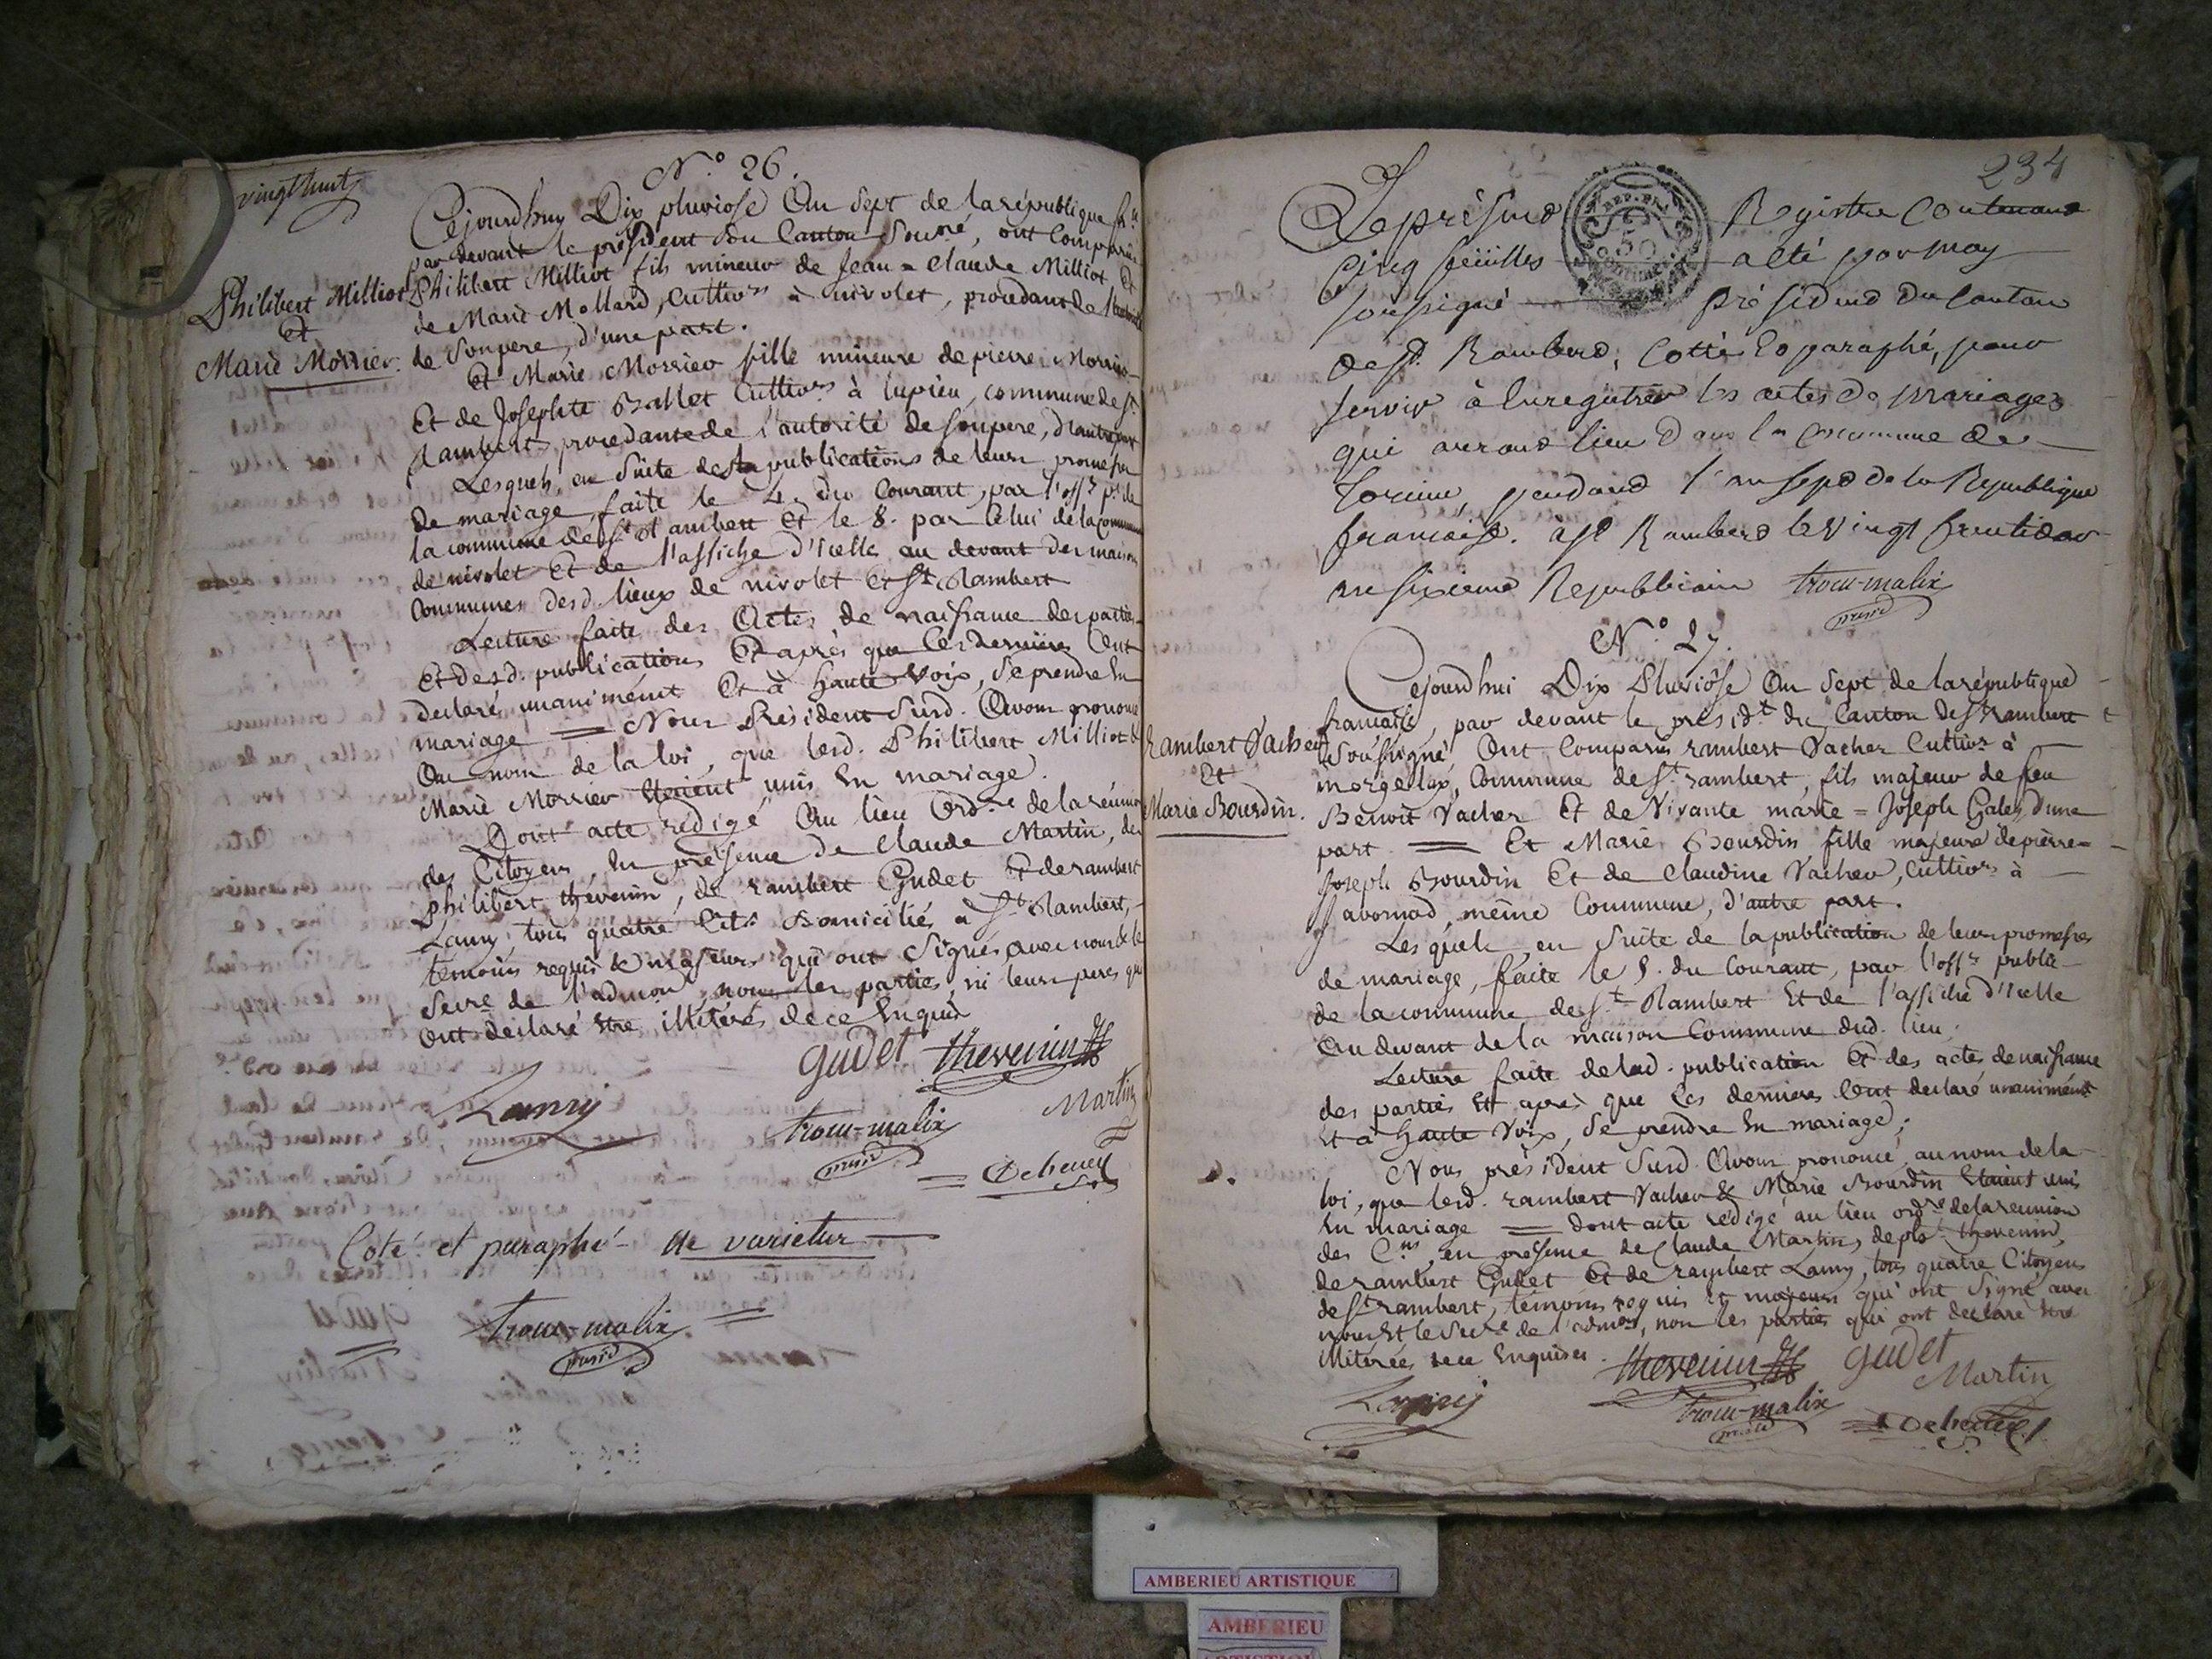 vingt huit
N.° 26.
Cejourdhuy Dix pluviose An Sept de la république fr.
par devant le président du Canton Sousné, ont Comparu
Philibert Milliot fils mineur de Jean=Claude Milliot Et
de Marie Mollard, Cultivrs à nivolet, procedant de l'autorité
de Sonpere, d'une part.
Philibert Milliot
Et
Marie Morrier.
Et Marie Morrier fille mineure de pierre Morrier
Et de Josephte Ballet Cultivrs à lupieu, commune de St
Rambert, procedante de l'autorité de Sonpere, d'autre part
Lesquels, en Suite des publications de leurs promesses
de mariage, faite le 4. du Courant, par l'offr pc de
la commune de St Rambert Et le 8. par Celui de la Commune
de nivolet Et de l'affiche d'icelles au devant des maisons
Communes desd. lieux de nivolet Et St Rambert
Lecture faite des Actes de naissance des parties
Et desd. publications Et après que Ces dernières Ont
declaré unanimént Et à haute voix, Se prendre En
mariage = Nous Président Susd. Avons prononcé
Au nom de la loi, que lesd. Philibert Milliot &
Marie Morrier Etoient unis En mariage.
Dont acte redigé Au lieu Ordre de la réunion
des Citoyens, En présence de Claude Martin, de
Philibert thevenin, de rambert Gudet Et de rambert
Lamy, tous quatre Cits Domiciliés à St Rambert,
temoins requis & majeurs qui ont Signés avec nous & le
Secre de l'admon, non les parties, ni leurs peres qui
Ont declaré Etre illiterés de ce Enquis
gudet thevenin
Lamy
Martin
trocu-malix
presid
= Debeney
Coté et paraphé ne varietur
trocu-malix =
presid
234
Le présend Registre Contenand
Cinq feüilles a eté par moy
Soussigné présidend du Canton
de St Ramberd, Cotté Et paraphé, pour
Servir à Enregistrer les actes de mariages
qui aurond lieu Dans la Commune de
torcieu, pendand l'an sept de la Republique
francaise. a St Ramberd le Vingt fructidor
an sixieme Republicain trocu-malix
presid
N.° 27.
Cejourdhui Dix Pluviôse An Sept de la république
francaise, par devant le présidt du Canton de St rambert
Soussigné, Ont Comparus rambert Vacher Cultivr à
morgelas, Commune de St rambert, fils majeur de feu
Benoit Vacher Et de Vivante marie=Joseph Galey, d'une
part = Et Marie Bourdin fille majeure de pierre=
Joseph Bourdin Et de Claudine Vacher, Cultivrs à
Javornod, même Commune, d'autre part.
Rambert Vacher
Et
Marie Bourdin.
Lesquels, en Suite de la publication de leurs promesses
de mariage, faite le 8. du Courant, par l'offr public
de la commune de St Rambert Et de l'affiche d'icelle
Au devant de la maison Commune dud. lieu;
Lecture faite de lad. publication Et des actes de naissance
des parties Et après que Ces dernieres Ont declaré unanimént
Et à Haute Voix, Se prendre En mariage;
Nous président Susd. Avons prononcé au nom de la
loi, que lesd. rambert Vacher & Marie Bourdin Etaient unis
En mariage = dont acte rédigé au lieu ordre de la reunion
des Cens, en présence de Claude Martin, de pht thevenin,
de rambert Gudet Et de rambert Lamy, tous quatre Citoyens
de St rambert, témoins requis Et majeurs qui ont Signé avec
nous Et le Secre de l'admon, non les parties qui ont declaré Etre
illitérées de ce Enquises. thevenin gudet
Martin
Lamy
trocu-malix
presid
= Debeney
AMBERIEU ARTISTIQUE
AMBERIEU
ARTISTIQUE